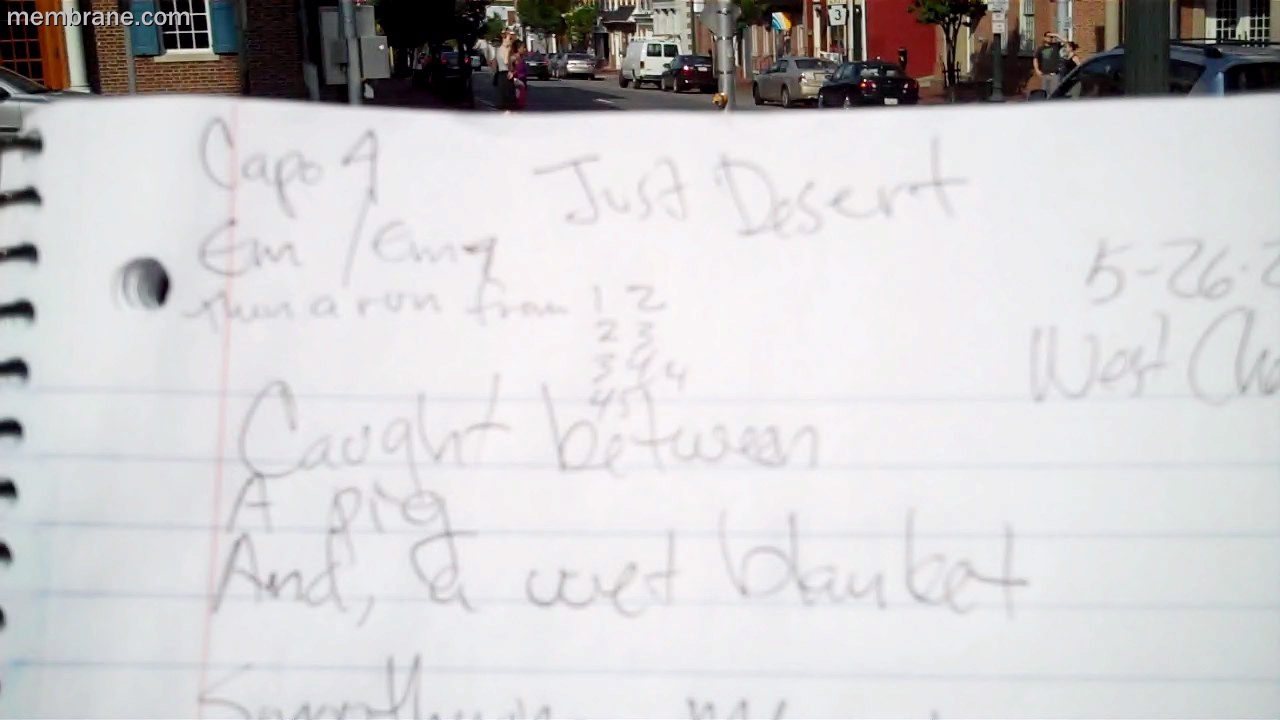 membrane.com
3
Capo 4
Just Desert
Em / Em9
then a run from 1 2
2 3
3 4 4
4 5
5-26-2
West Che
Caught between
A pig
And, a wet blanket
Smothering me